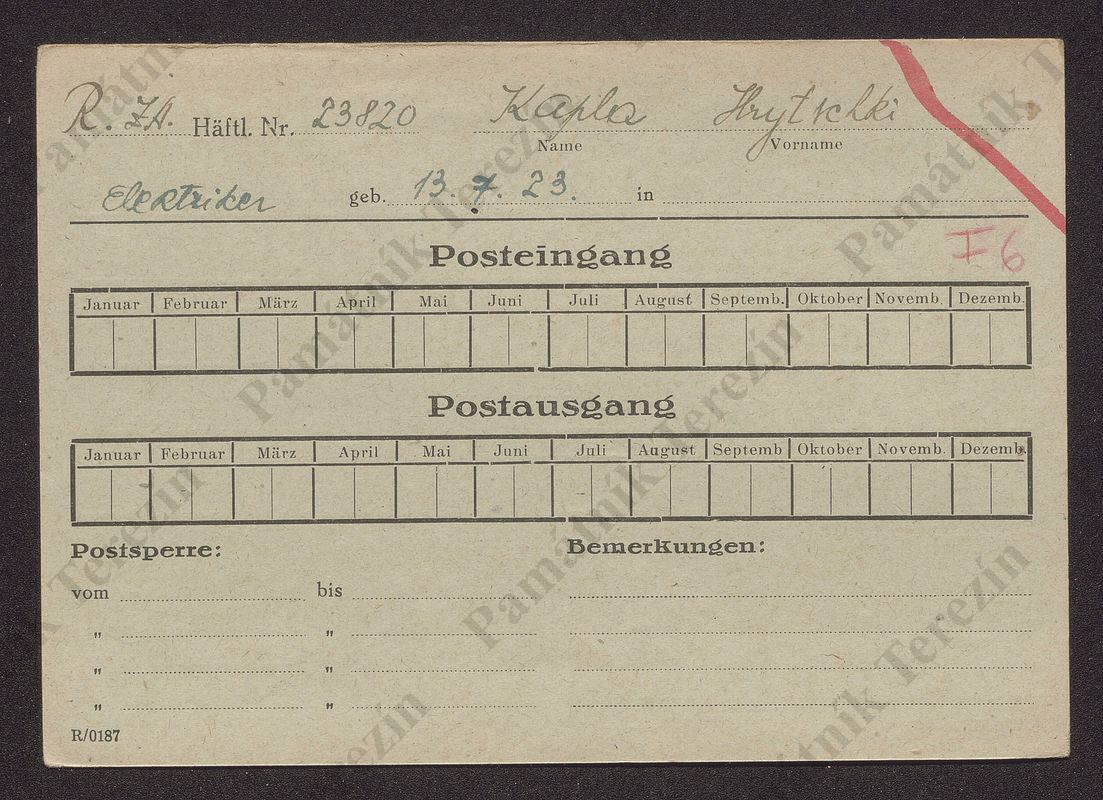 R. ZA. Häftl. Nr. 23820 Kapla Hrytschki
Name Vorname
Elektriker geb. 13. 7. 23. in
I 6
Posteingang
Januar Februar März April Mai Juni Juli August Septemb. Oktober Novemb. Dezemb.
Postausgang
Januar Februar März April Mai Juni Juli August Septemb Oktober Novemb. Dezemb.
Postsperre: Bemerkungen:
vom bis
" "
" "
" "
R/0187
Památník Terezín
Památník Terezín
Památník Terezín
Památník Terezín